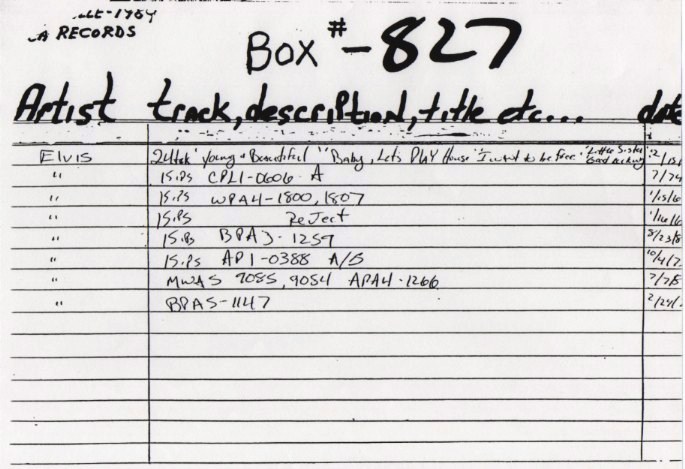 -1984
RECORDS
Box # -827
Artist track, description, title etc... date
Elvis 24trk "Young & Beautiful" "Baby, Lets PLAY House" I want to be free "Little Sister"
" 15.IPS CPL1-0606 A 7/74
" 15.IPS WPA4-1800, 1807
" 15.IPS Reject
" 15.IPS BPA3-1259
" 15.IPS AP1-0388 A/B
" MWAS 9085, 9054 APA4-1266
" BPA5-1147